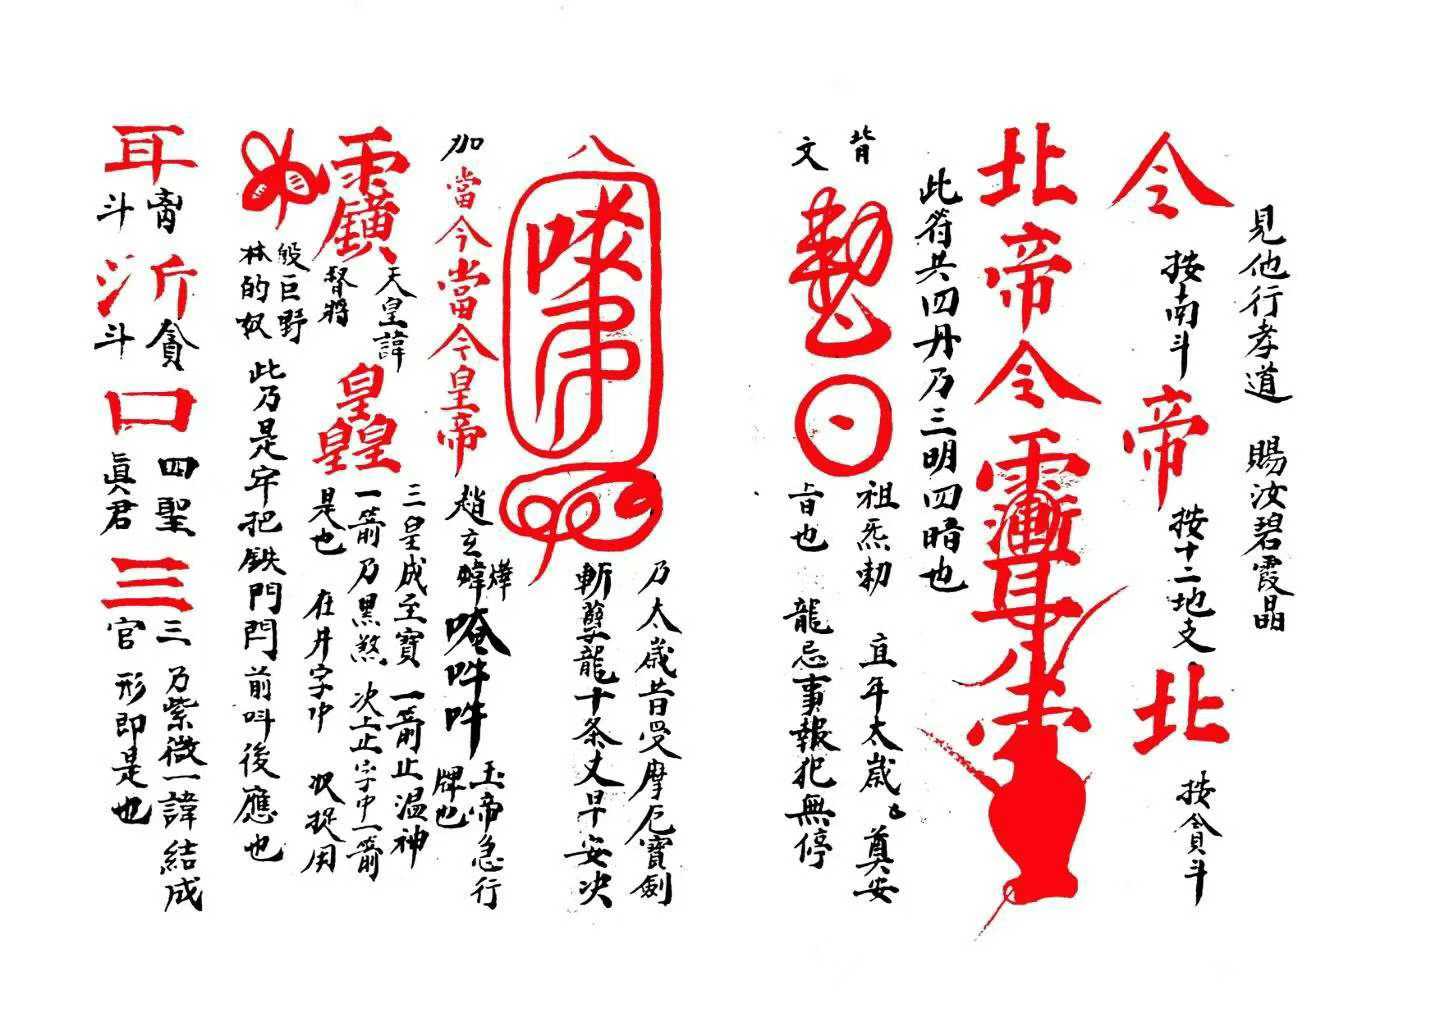 見他行孝道 賜汝碧霞晶
令 按南斗 帝 按十二地支 北 按貪斗
北帝令
此符共四丹乃三明四暗也
背文
勅 日
祖炁勅 直年太歲 奠安
旨也 龍忌事報犯無停
八
乃太歲昔受摩厄寶劍
斬孽龍十条丈早安决
加當今當今皇帝 趙玄 唵吽吽 玉帝急行牌也
天皇諱
督將
皇皇皇
三皇成至寶 一箭止温神
一箭乃黑煞 次上止字中一箭
是也 在井字中 捉用
殷巨野
林的奴
此乃是牢把鉄門閂前呌後應也
耳 斗 沂 貪斗 口 四聖真君 三 三官
乃紫微一諱結成
形即是也